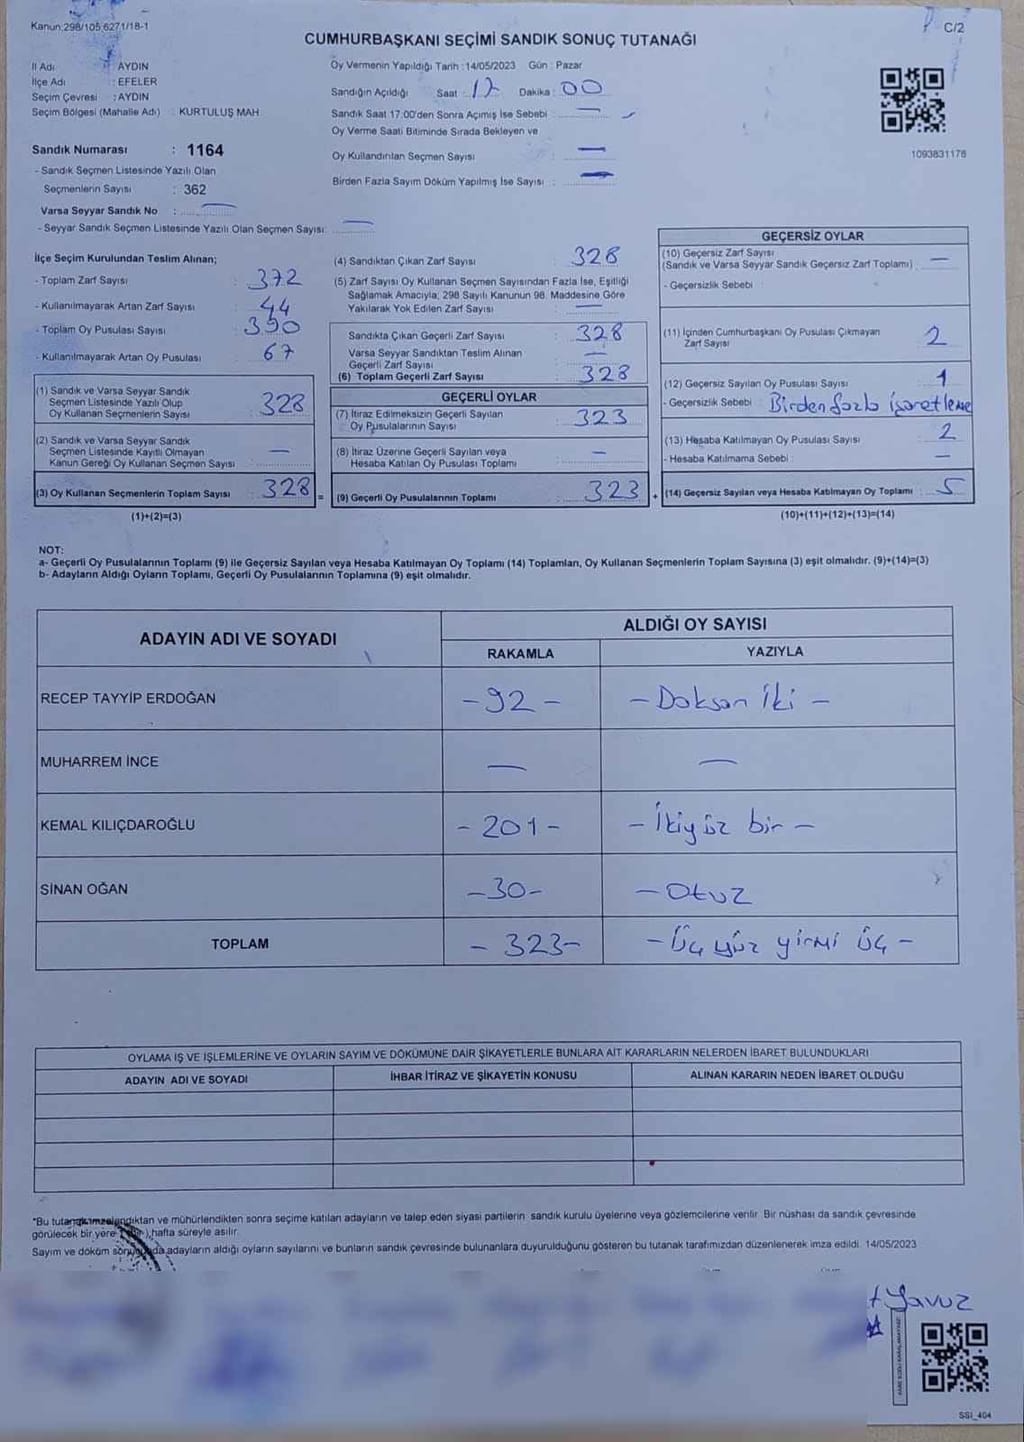 Kanun:298/105-6271/18-1
C/2
CUMHURBAŞKANI SEÇİMİ SANDIK SONUÇ TUTANAĞI
İl Adı : AYDIN
İlçe Adı : EFELER
Seçim Çevresi : AYDIN
Seçim Bölgesi (Mahalle Adı) : KURTULUŞ MAH
Oy Vermenin Yapıldığı Tarih :14/05/2023 Gün : Pazar
Sandığın Açıldığı Saat : 17 Dakika : 00
Sandık Saat 17:00'den Sonra Açımış İse Sebebi : —
Oy Verme Saati Bitiminde Sırada Bekleyen ve
Oy Kullandırılan Seçmen Sayısı : —
Birden Fazla Sayım Döküm Yapılmış İse Sayısı : —
1093831176
Sandık Numarası : 1164
- Sandık Seçmen Listesinde Yazılı Olan
Seçmenlerin Sayısı : 362
Varsa Seyyar Sandık No : —
- Seyyar Sandık Seçmen Listesinde Yazılı Olan Seçmen Sayısı: —
İlçe Seçim Kurulundan Teslim Alınan;
- Toplam Zarf Sayısı : 372
- Kullanılmayarak Artan Zarf Sayısı : 44
- Toplam Oy Pusulası Sayısı : 390
- Kullanılmayarak Artan Oy Pusulası : 67
(1) Sandık ve Varsa Seyyar Sandık
Seçmen Listesinde Yazılı Olup
Oy Kullanan Seçmenlerin Sayısı : 328
(2) Sandık ve Varsa Seyyar Sandık
Seçmen Listesinde Kayıtlı Olmayan
Kanun Gereği Oy Kullanan Seçmen Sayısı : —
(3) Oy Kullanan Seçmenlerin Toplam Sayısı : 328 =
(1)+(2)=(3)
(4) Sandıktan Çıkan Zarf Sayısı : 328
(5) Zarf Sayısı Oy Kullanan Seçmen Sayısından Fazla İse, Eşitliği
Sağlamak Amacıyla; 298 Sayılı Kanunun 98. Maddesine Göre
Yakılarak Yok Edilen Zarf Sayısı : —
Sandıkta Çıkan Geçerli Zarf Sayısı : 328
Varsa Seyyar Sandıktan Teslim Alınan
Geçerli Zarf Sayısı : —
(6) Toplam Geçerli Zarf Sayısı : 328
GEÇERLİ OYLAR
(7) İtiraz Edilmeksizin Geçerli Sayılan
Oy Pusulalarının Sayısı : 323
(8) İtiraz Üzerine Geçerli Sayılan veya
Hesaba Katılan Oy Pusulası Toplamı : —
(9) Geçerli Oy Pusulalarının Toplamı : 323 +
GEÇERSİZ OYLAR
(10) Geçersiz Zarf Sayısı
(Sandık ve Varsa Seyyar Sandık Geçersiz Zarf Toplamı) : —
- Geçersizlik Sebebi :
(11) İçinden Cumhurbaşkanı Oy Pusulası Çıkmayan
Zarf Sayısı : 2
(12) Geçersiz Sayılan Oy Pusulası Sayısı : 1
- Geçersizlik Sebebi : Birden fazla işaretleme
(13) Hesaba Katılmayan Oy Pusulası Sayısı : 2
- Hesaba Katılmama Sebebi : —
(14) Geçersiz Sayılan veya Hesaba Katılmayan Oy Toplamı : 5
(10)+(11)+(12)+(13)=(14)
NOT:
a- Geçerli Oy Pusulalarının Toplamı (9) ile Geçersiz Sayılan veya Hesaba Katılmayan Oy Toplamı (14) Toplamları, Oy Kullanan Seçmenlerin Toplam Sayısına (3) eşit olmalıdır. (9)+(14)=(3)
b- Adayların Aldığı Oyların Toplamı, Geçerli Oy Pusulalarının Toplamına (9) eşit olmalıdır.
ADAYIN ADI VE SOYADI ALDIĞI OY SAYISI
RAKAMLA YAZIYLA
RECEP TAYYİP ERDOĞAN -92- - Doksan iki -
MUHARREM İNCE — —
KEMAL KILIÇDAROĞLU - 201 - - İkiyüz bir -
SİNAN OĞAN -30- - Otuz
TOPLAM - 323- - Üç yüz yirmi üç -
OYLAMA İŞ VE İŞLEMLERİNE VE OYLARIN SAYIM VE DÖKÜMÜNE DAİR ŞİKAYETLERLE BUNLARA AİT KARARLARIN NELERDEN İBARET BULUNDUKLARI
ADAYIN ADI VE SOYADI İHBAR İTİRAZ VE ŞİKAYETİN KONUSU ALINAN KARARIN NEDEN İBARET OLDUĞU
*Bu tutanak imzalandıktan ve mühürlendikten sonra seçime katılan adayların ve talep eden siyasi partilerin sandık kurulu üyelerine veya gözlemcilerine verilir. Bir nüshası da sandık çevresinde
görülecek bir yere (bir) hafta süreyle asılır.
Sayım ve döküm sonucunda adayların aldığı oyların sayılarını ve bunların sandık çevresinde bulunanlara duyurulduğunu gösteren bu tutanak tarafımızdan düzenlenerek imza edildi. 14/05/2023
Yavuz
SSI_404